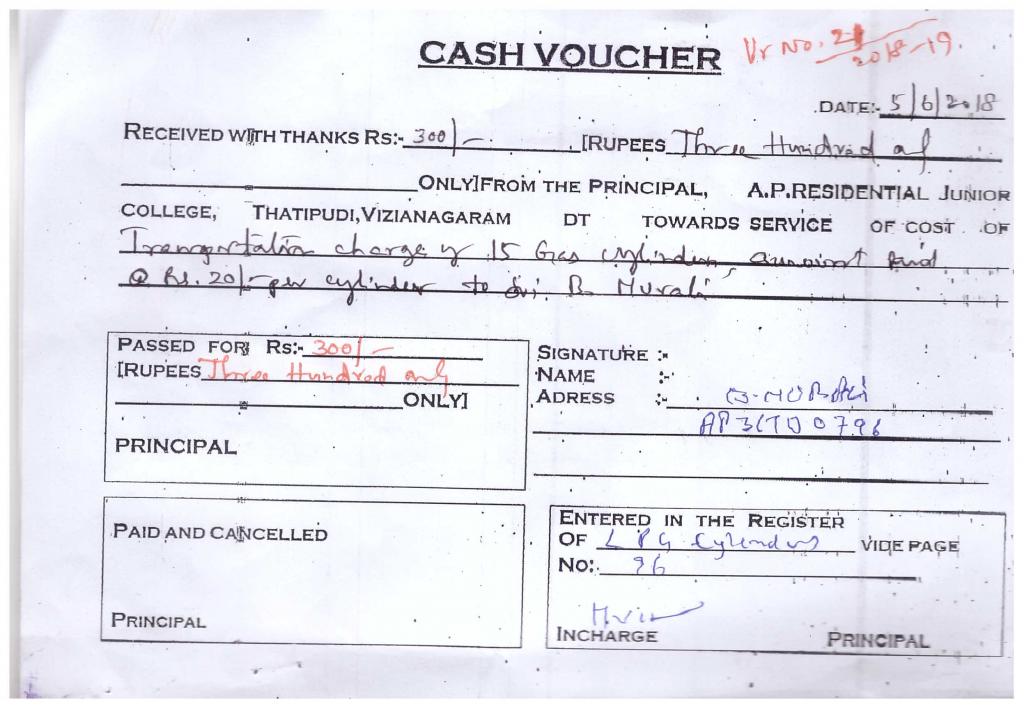 CASH VOUCHER
Vr No.
2018-19.
DATE:- 5/6/2018
RECEIVED WITH THANKS Rs:- 300/- [RUPEES Three Hundred only
ONLY]FROM THE PRINCIPAL, A.P.RESIDENTIAL JUNIOR
COLLEGE, THATIPUDI,VIZIANAGARAM DT TOWARDS SERVICE OF COST OF
Transportation charge of 15 Gas cylinders, amount paid
@ Rs. 20/- per cylinder to Sri. B. Murali
PASSED FOR Rs:- 300/-
[RUPEES Three Hundred only
ONLY]
PRINCIPAL
SIGNATURE :-
NAME :-
ADRESS :-
PAID AND CANCELLED
PRINCIPAL
ENTERED IN THE REGISTER
OF LPG Cylenders VIDE PAGE
No:. 96
INCHARGE PRINCIPAL